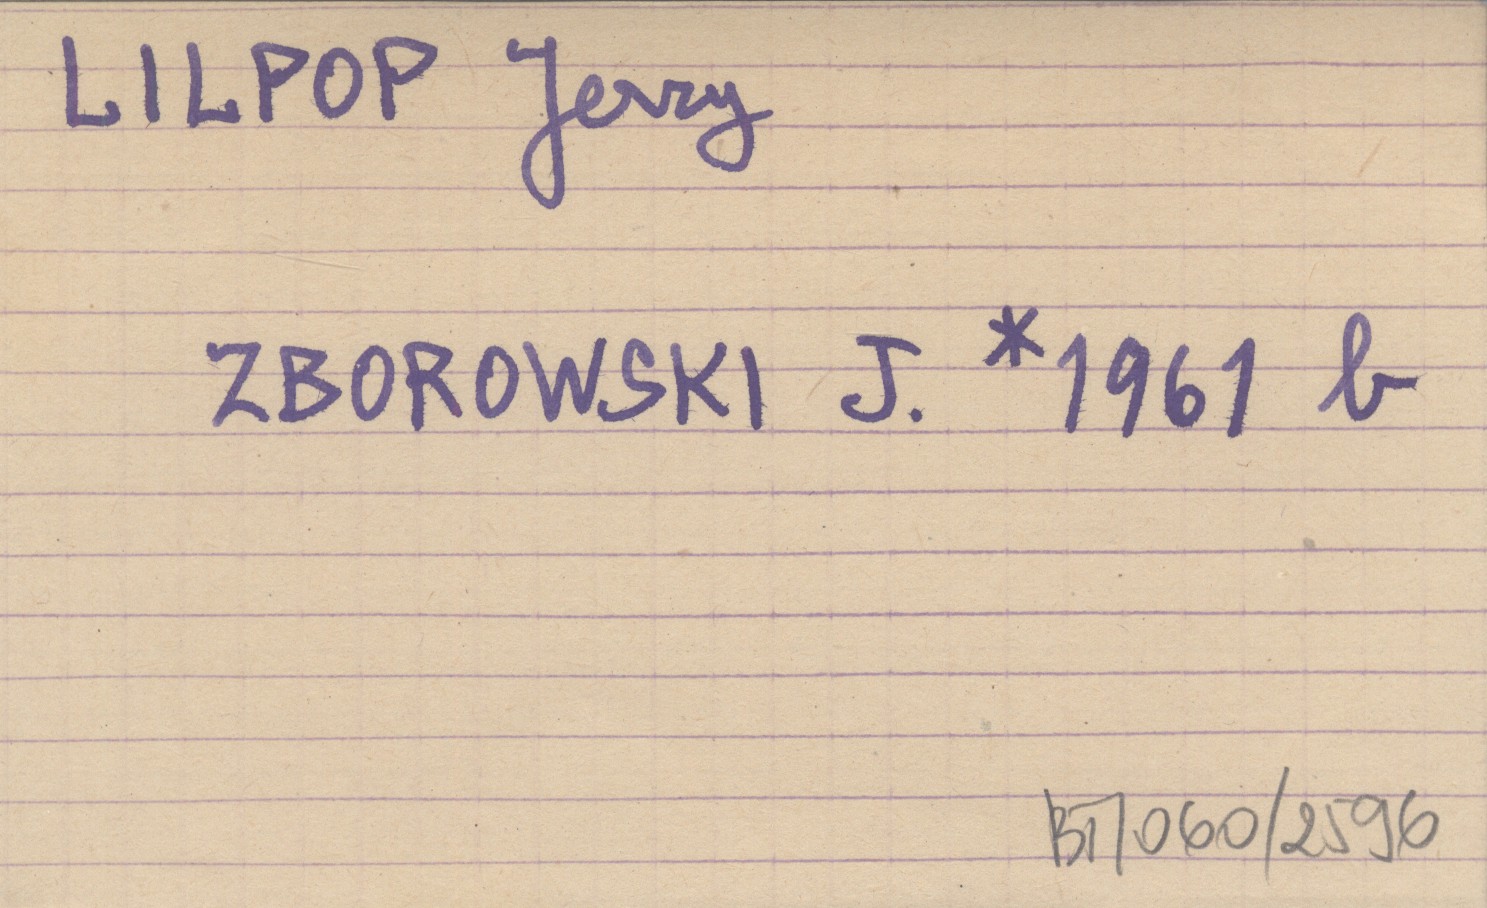 LILPOP Jerzy
ZBOROWSKI J. *1961 b
BT/060/2596